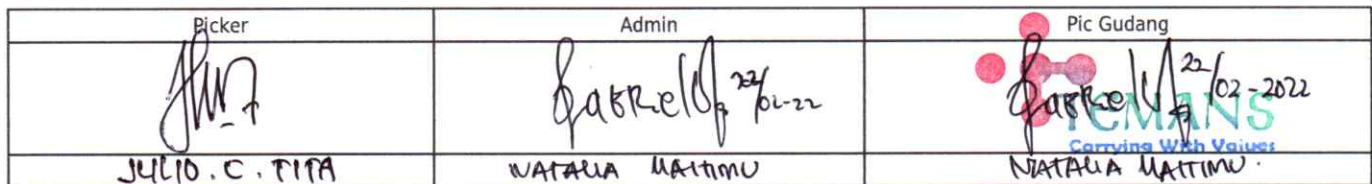 Picker Admin Pic Gudang
22/02-22 22/02-2022
TEMANS
Carrying With Values
JULIO . C . TITA NATALIA MAITIMU NATALIA MAITIMU.